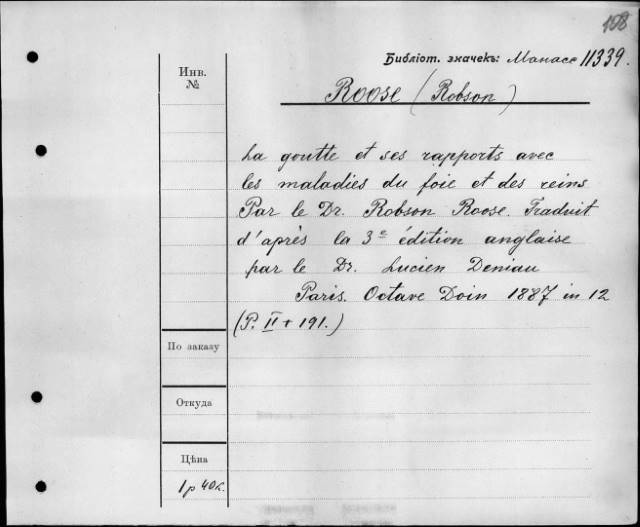 108
Библіот. значекъ: Манасс 11339.
Инв.
№
Roose (Robson)
La goutte et ses rapports avec
les maladies du foie et des reins
Par le Dr. Robson Roose. Traduit
d'après la 3e édition anglaise
par le Dr. Lucien Deniau
Paris. Octave Doin 1887 in 12
(P. II + 191.)
По заказу
Откуда
Цѣна
1 р 40 к.